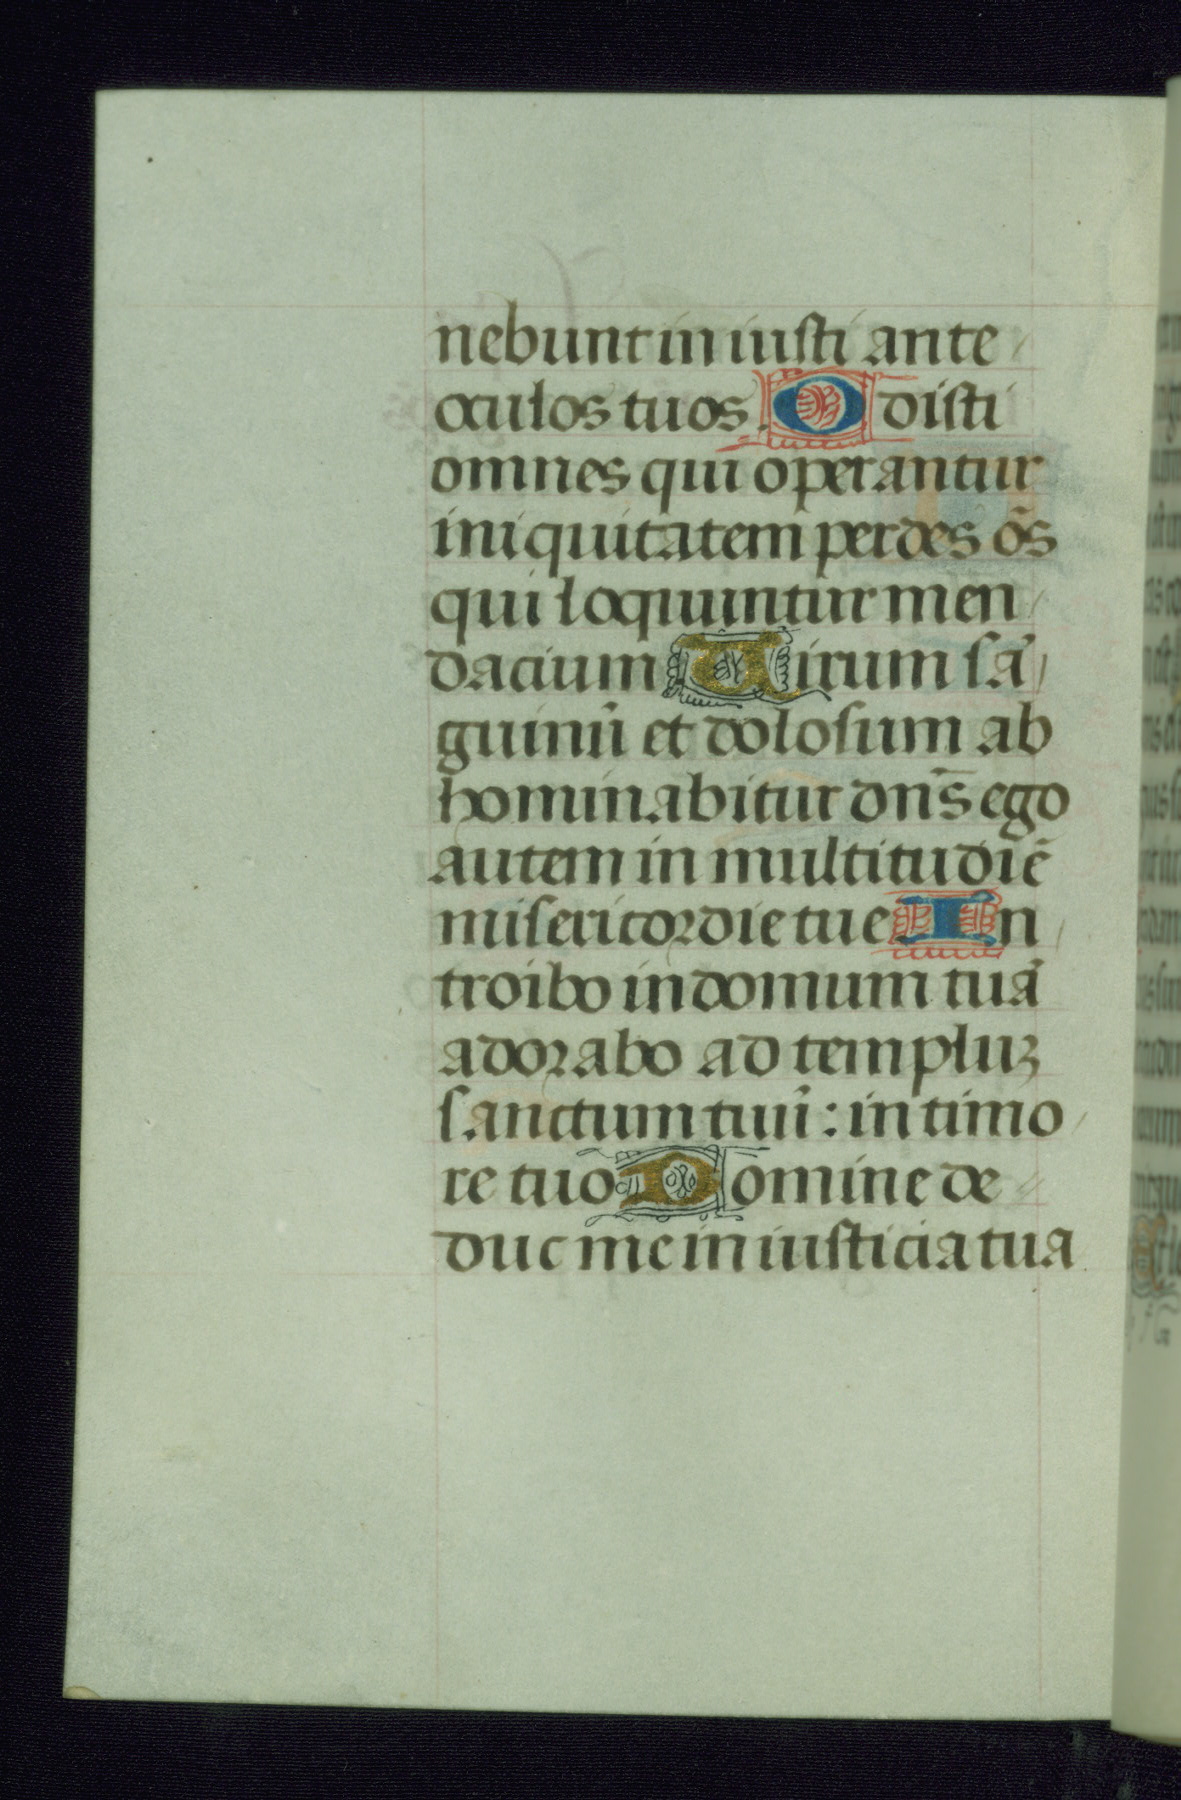 nebunt in iusti ante
oculos tuos. Odisti
omnes qui operantur
iniquitatem perdes o̅s
qui loquuntur men
dacium Uirum sa̅
guinu̅ et dolosum ab
hominabitur dn̅s ego
autem in multitudie̅
misericordie tue In
troibo in domum tua̅
adorabo ad templuz
sanctum tuu̅: in timo
re tuo Domine de
duc me in iusticia tua